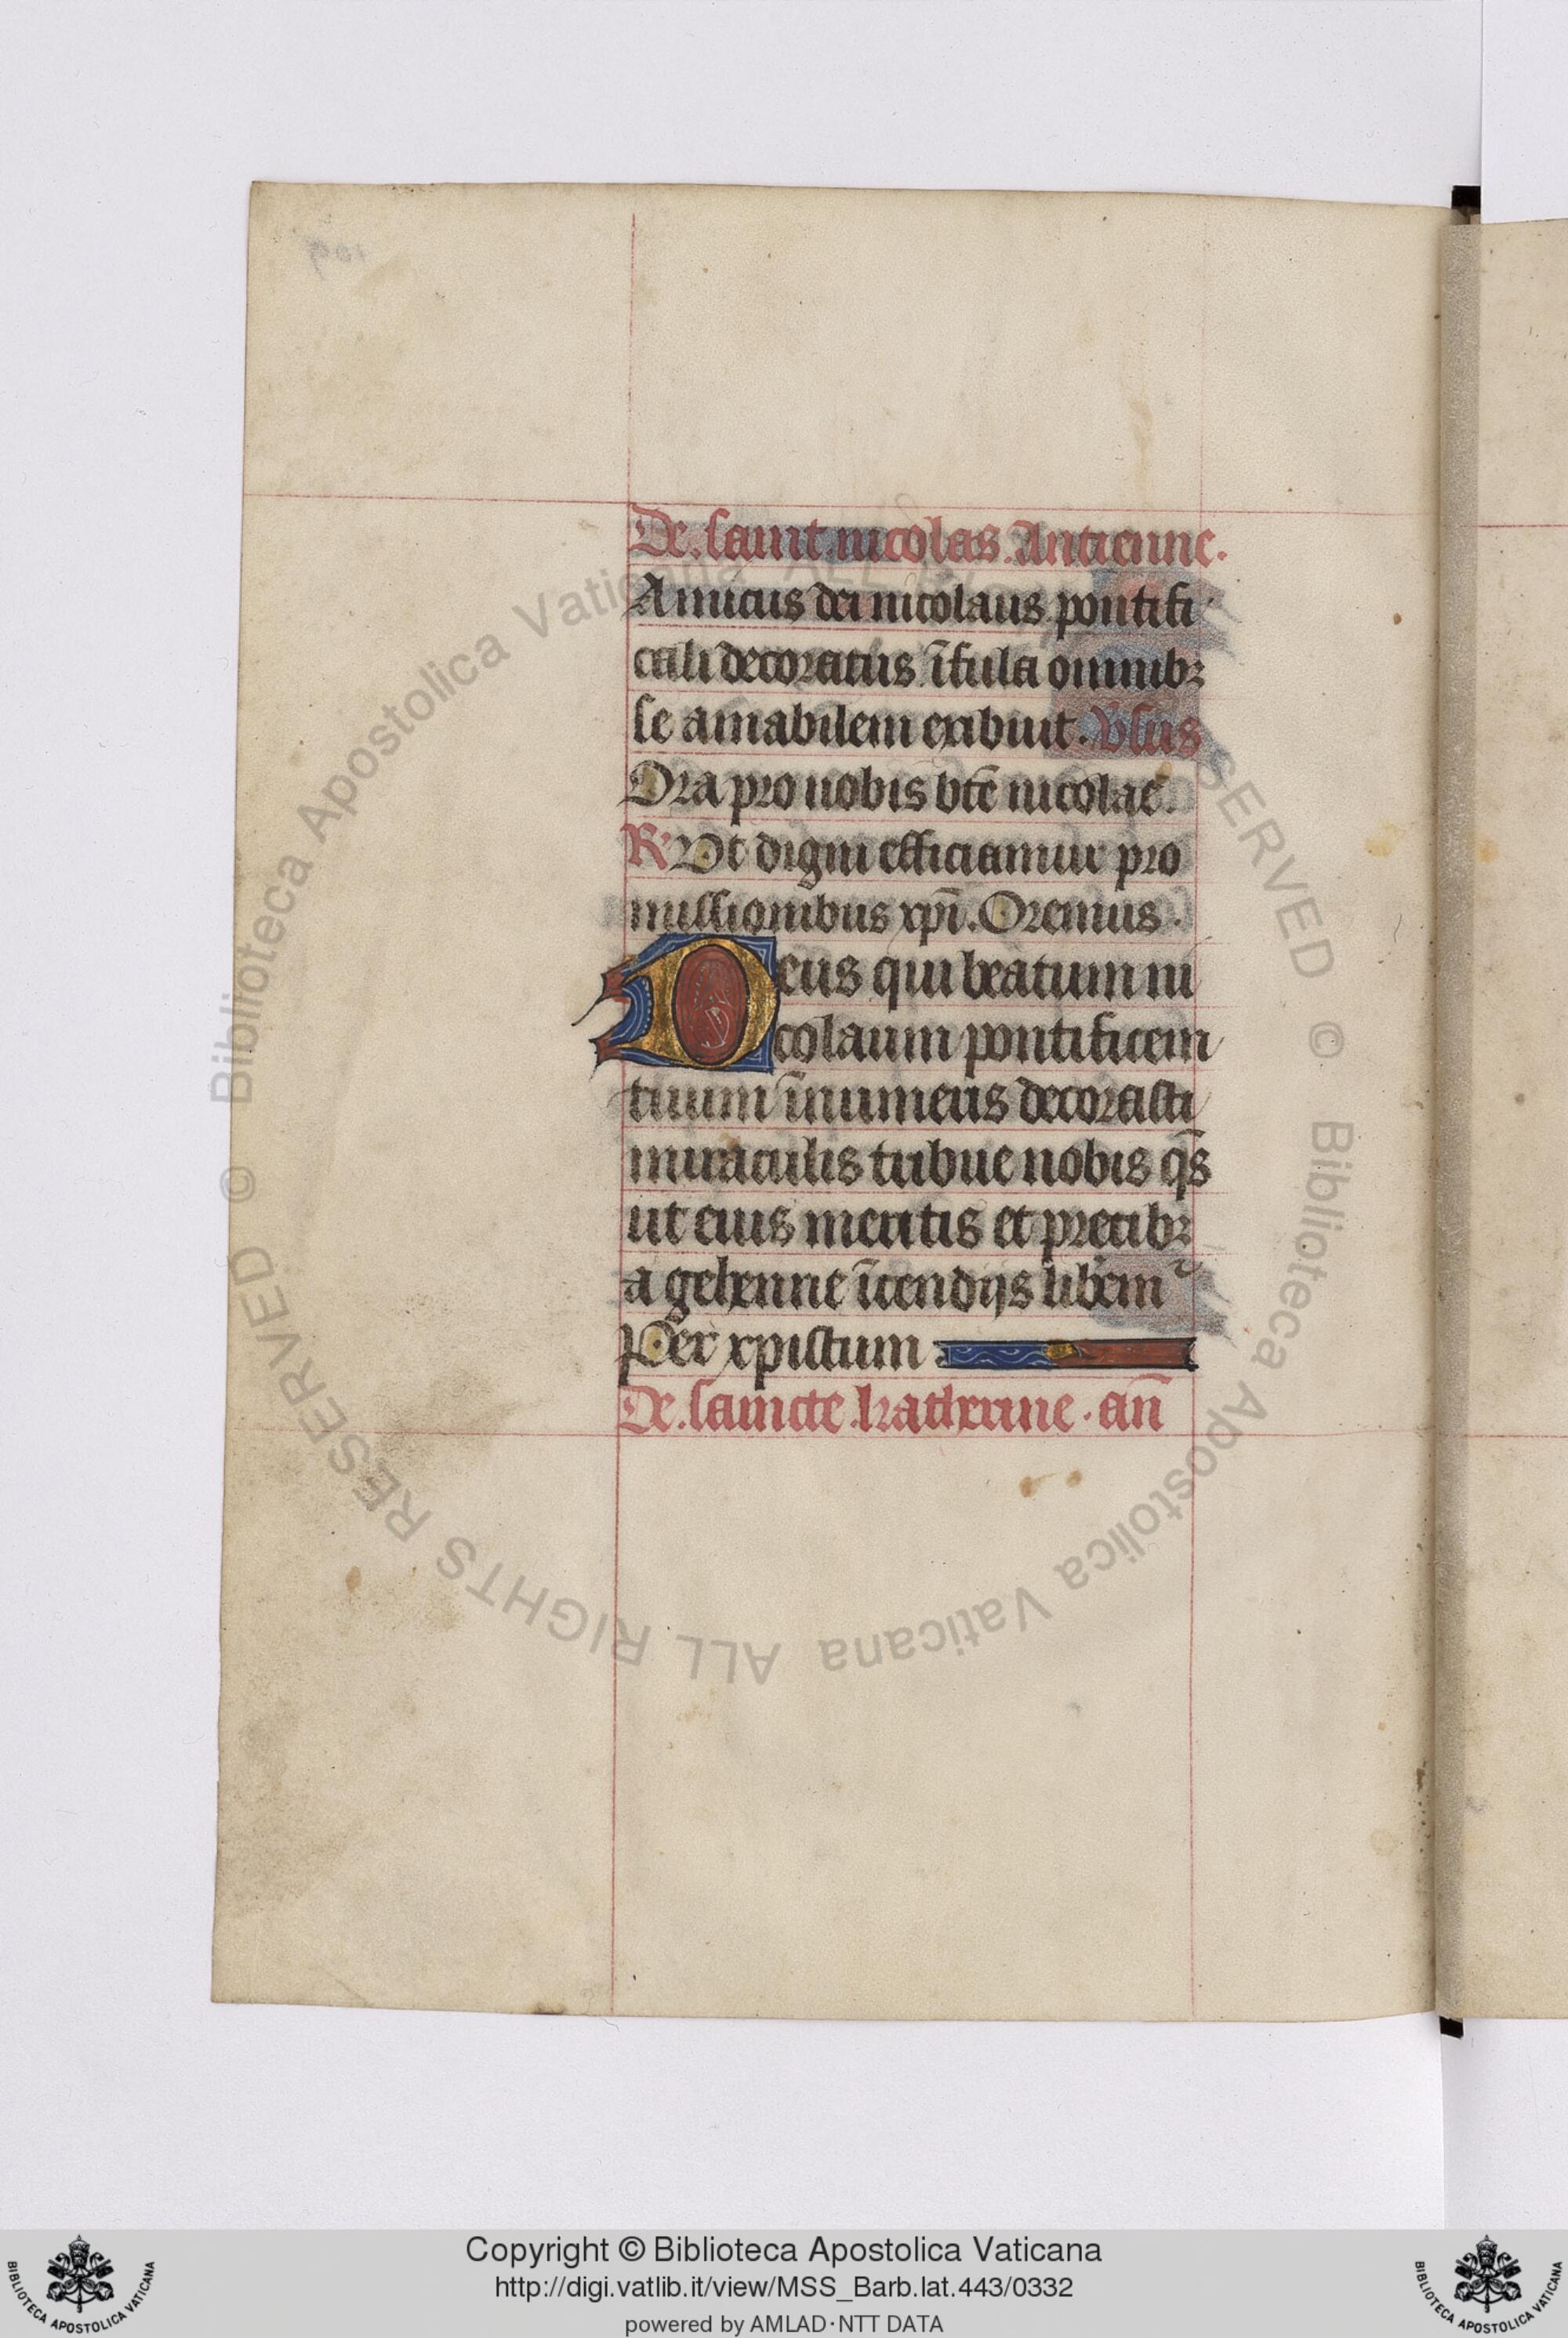 De.saint.nicolas.Antienne.
Amicus dei nicolaus pontifi
cali decoratus īfula omnibꝫ
se amabilem exibuit. Vsus
Ora pro nobis bt̄e nicolae.
R' Vt digni efficiamur pro
missionibus xp̄i. Oremus.
Deus qui beatum ni
colaum pontificem
tuum īnumeris decorasti
miraculis tribue nobis q̄s
ut eius meritis et precibꝫ
a gehenne īcendijs libem᷑
Per xpistum
De.saincte.katherine.an̄
© Biblioteca Apostolica Vaticana ALL RIGHTS RESERVED
Copyright © Biblioteca Apostolica Vaticana
http://digi.vatlib.it/view/MSS_Barb.lat.443/0332
powered by AMLAD·NTT DATA
BIBLIOTECA APOSTOLICA VATICANA
BIBLIOTECA APOSTOLICA VATICANA